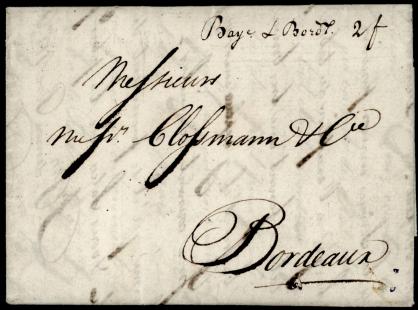 Baye & Bordx. 2 f
Messieurs
messrs. Clossmann & Cie
Bordeaux